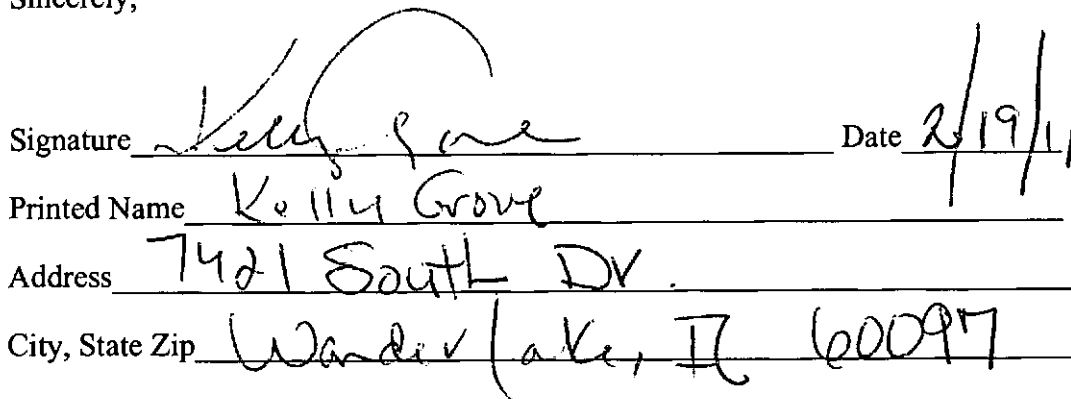 Sincerely,
Signature Kelly Grove Date 2/19/11
Printed Name Kelly Grove
Address 7421 South Dr.
City, State Zip Wonder Lake, IL 60097